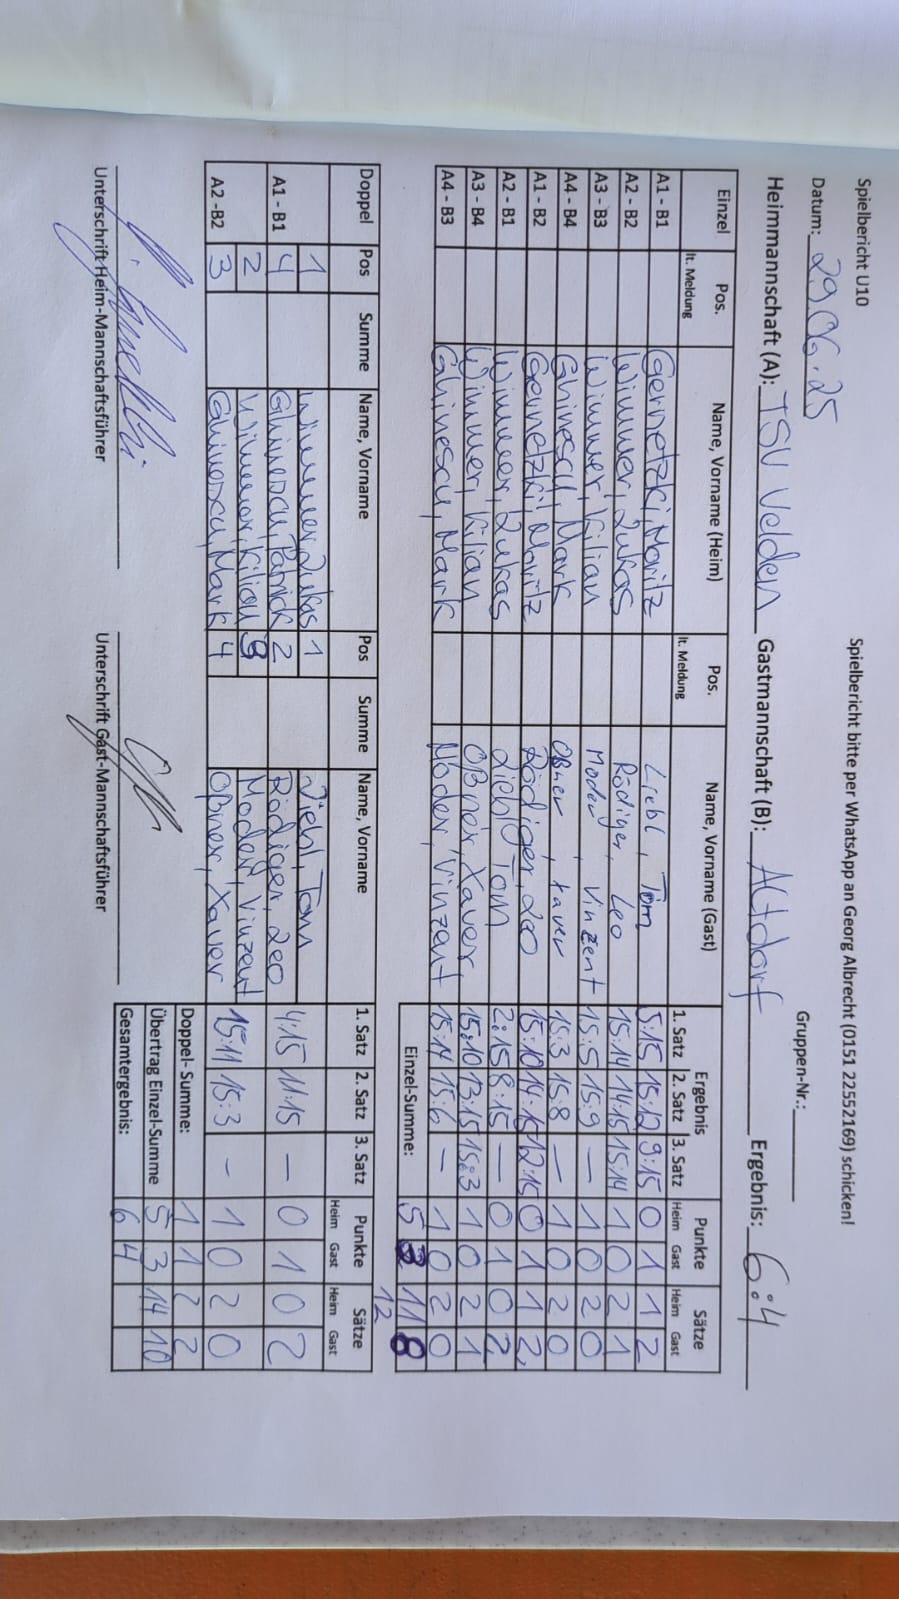 Spielbericht U10 Spielbericht bitte per WhatsApp an Georg Albrecht (0151 22552169) schicken!
Datum: 29.06.25 Gruppen-Nr.:
Heimmannschaft (A): TSV Velden Gastmannschaft (B): Altdorf Ergebnis: 6:4
Einzel Pos. lt. Meldung Name, Vorname (Heim) Pos. lt. Meldung Name, Vorname (Gast) Ergebnis 1. Satz 2. Satz 3. Satz Punkte Heim Gast Sätze Heim Gast
A1 - B1 Gernetzki, Moritz Liebl, Tom 5:15 15:12 9:15 0 1 1 2
A2 - B2 Wimmer, Lukas Rödiger, Leo 15:14 14:15 15:14 1 0 2 1
A3 - B3 Wimmer, Kilian Moder, Vinzent 15:5 15:9 — 1 0 2 0
A4 - B4 Ghinescu, Mark Oßner, Xaver 15:3 15:8 — 1 0 2 0
A1 - B2 Gernetzki, Moritz Rödiger, Leo 15:10 14:15 12:15 0 1 1 2
A2 - B1 Wimmer, Lukas Liebl, Tom 2:15 8:15 — 0 1 0 2
A3 - B4 Wimmer, Kilian Oßner, Xaver 15:10 13:15 15:3 1 0 2 1
A4 - B3 Ghinescu, Mark Moder, Vinzent 15:14 15:6 — 1 0 2 0
Einzel-Summe: 5 3 11 8
12
Doppel Pos Summe Name, Vorname Pos Summe Name, Vorname 1. Satz 2. Satz 3. Satz Punkte Heim Gast Sätze Heim Gast
1 Wimmer, Lukas 1 Liebl, Tom
A1 - B1 4 Ghinescu, Patrick 2 Rödiger, Leo 4:15 11:15 — 0 1 0 2
2 Wimmer, Kilian Moder, Vinzent
A2 -B2 3 Ghinescu, Mark 4 Oßner, Xaver 15:11 15:3 — 1 0 2 0
Doppel- Summe: 1 1 2 2
Übertrag Einzel-Summe 5 3 14 10
Gesamtergebnis: 6 4
Unterschrift Heim-Mannschaftsführer Unterschrift Gast-Mannschaftsführer